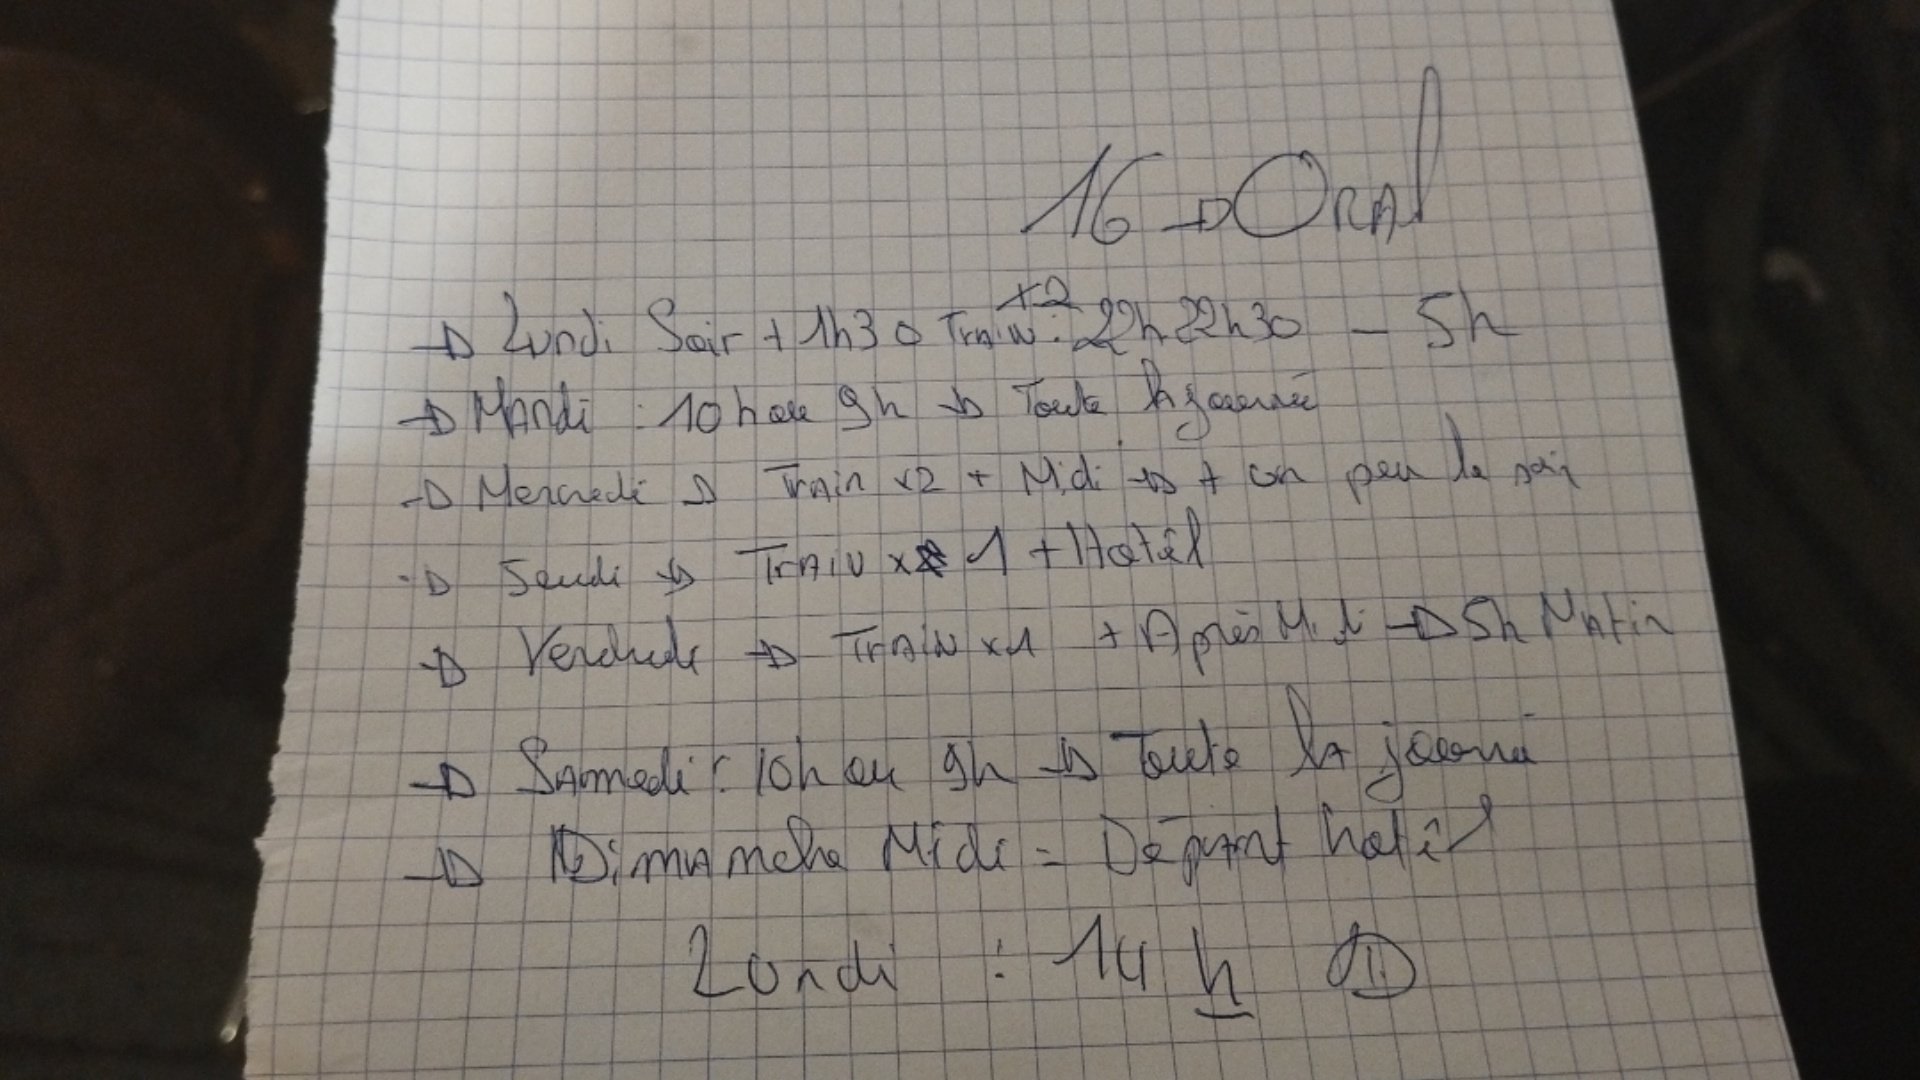 16 → Oral
→ Lundi Soir + 1h30 Train x2 : 22h 22h30 — 5h
→ Mardi : 10h ou 9h → Toute la journée
→ Mercredi → Train x2 + Midi → + un peu le soir
→ Jeudi → Train x 1 + Hotêl
→ Vendredi → Train x1 + Après Midi → 5h Matin
→ Samedi : 10h ou 9h → Toute la journé
→ Dimanche Midi = Départ hotêl
Lundi : 14 h